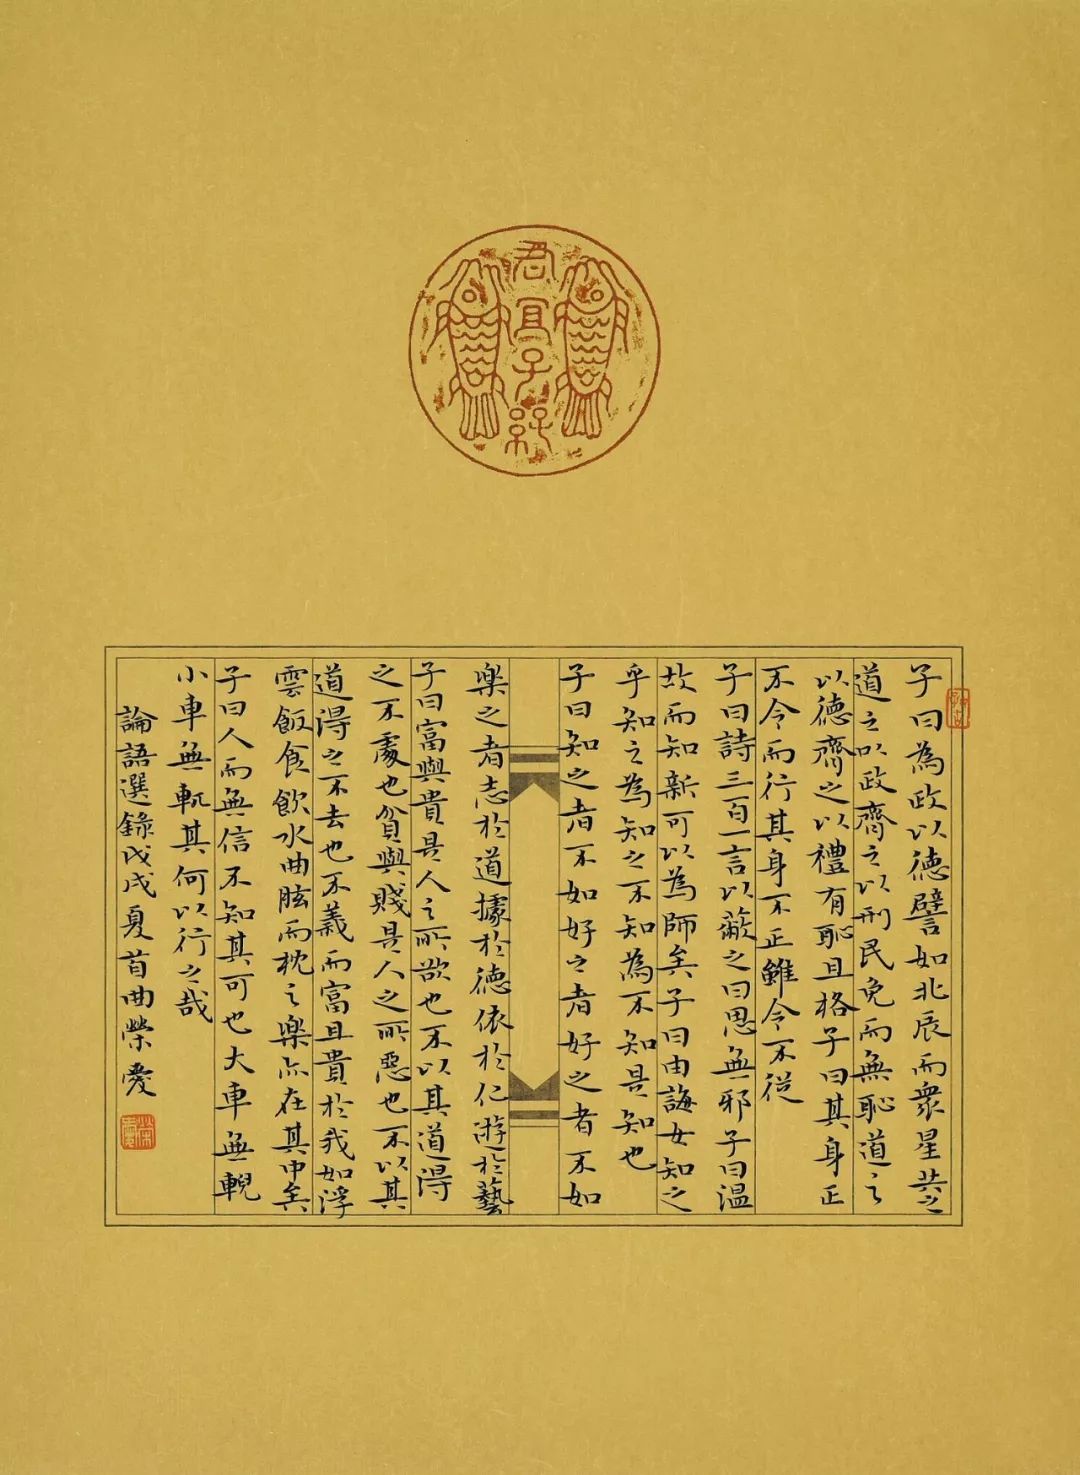 君宜子孫
子曰為政以德譬如北辰而眾星共之
道之以政齊之以刑民免而無恥道之
以德齊之以禮有恥且格子曰其身正
不令而行其身不正雖令不從
子曰詩三百一言以蔽之曰思無邪子曰溫
故而知新可以為師矣子曰由誨女知之
乎知之為知之不知為不知是知也
子曰知之者不如好之者好之者不如
樂之者志於道據於德依於仁游於藝
子曰富與貴是人之所欲也不以其道得
之不處也貧與賤是人之所惡也不以其
道得之不去也不義而富且貴於我如浮
雲飯食飲水曲肱而枕之樂亦在其中矣
子曰人而無信不知其可也大車無輗
小車無軏其何以行之哉
論語選錄戊戌夏首曲榮愛